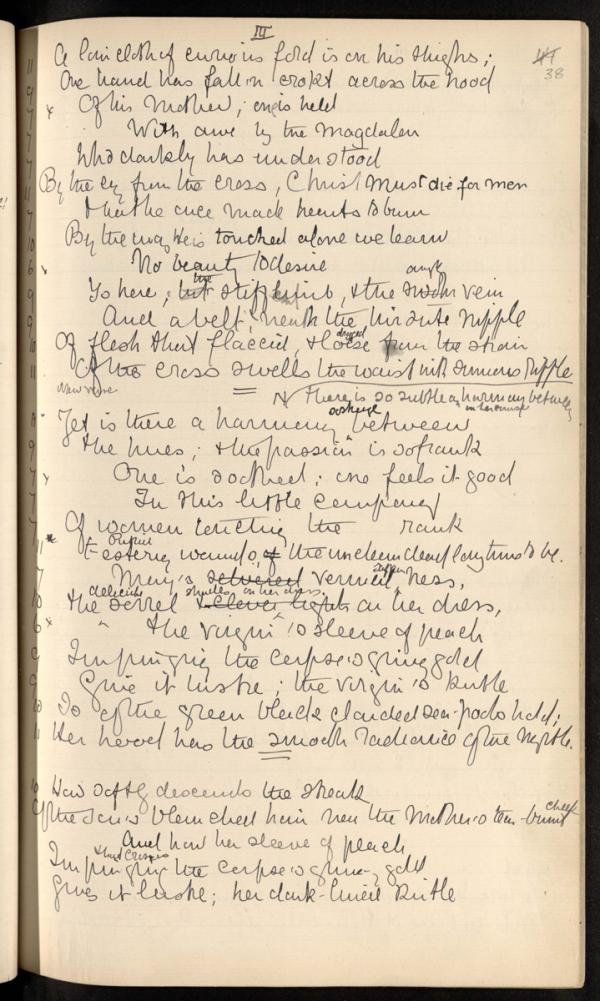 III
38
A loin cloth of curious fold is on his thighs;
One hand has fallen crokt across the hood
Of his Mother; one is held
With awe by the Magdalen
Who darkly has understood
By the cry from the cross, Christ must die for men
That he once made hearts to burn
By the way He is touched alone we learn
No beauty to desire
Is here, the stiffening limb, & the vein
And a belt, 'neath the hirsute nipple
Of flesh that flaccid, & loose from the strain
Of the cross swells the waist with sinuous ripple
New verse
There is so subtle a harmony between
Yet is there a harmony between
strange
the hues; & the passion is so frank
One is soothed; one feels it good
In this little company
Of women tending the rank
Festering wounds, of the unclean dead long time to be.
Mary's silvered vermeil ness,
delicate on her dress
the sorrel & clever lights on her dress,
" the Virgin's sleeve of peach
Impinging the corpse's grimy gold
Give it lustre; the Virgin's kirtle
Is of the green black clouded sea-pools hold;
Her hood has the smooth radiance of the myrtle.
How softly descends the streak
Of the Son's blenched hair near the Mother's tear-burnt cheek
And how her sleeve of peach
that crosses
Impinging the corpse's grimy gold
Gives it lustre; her dark-lined kirtle